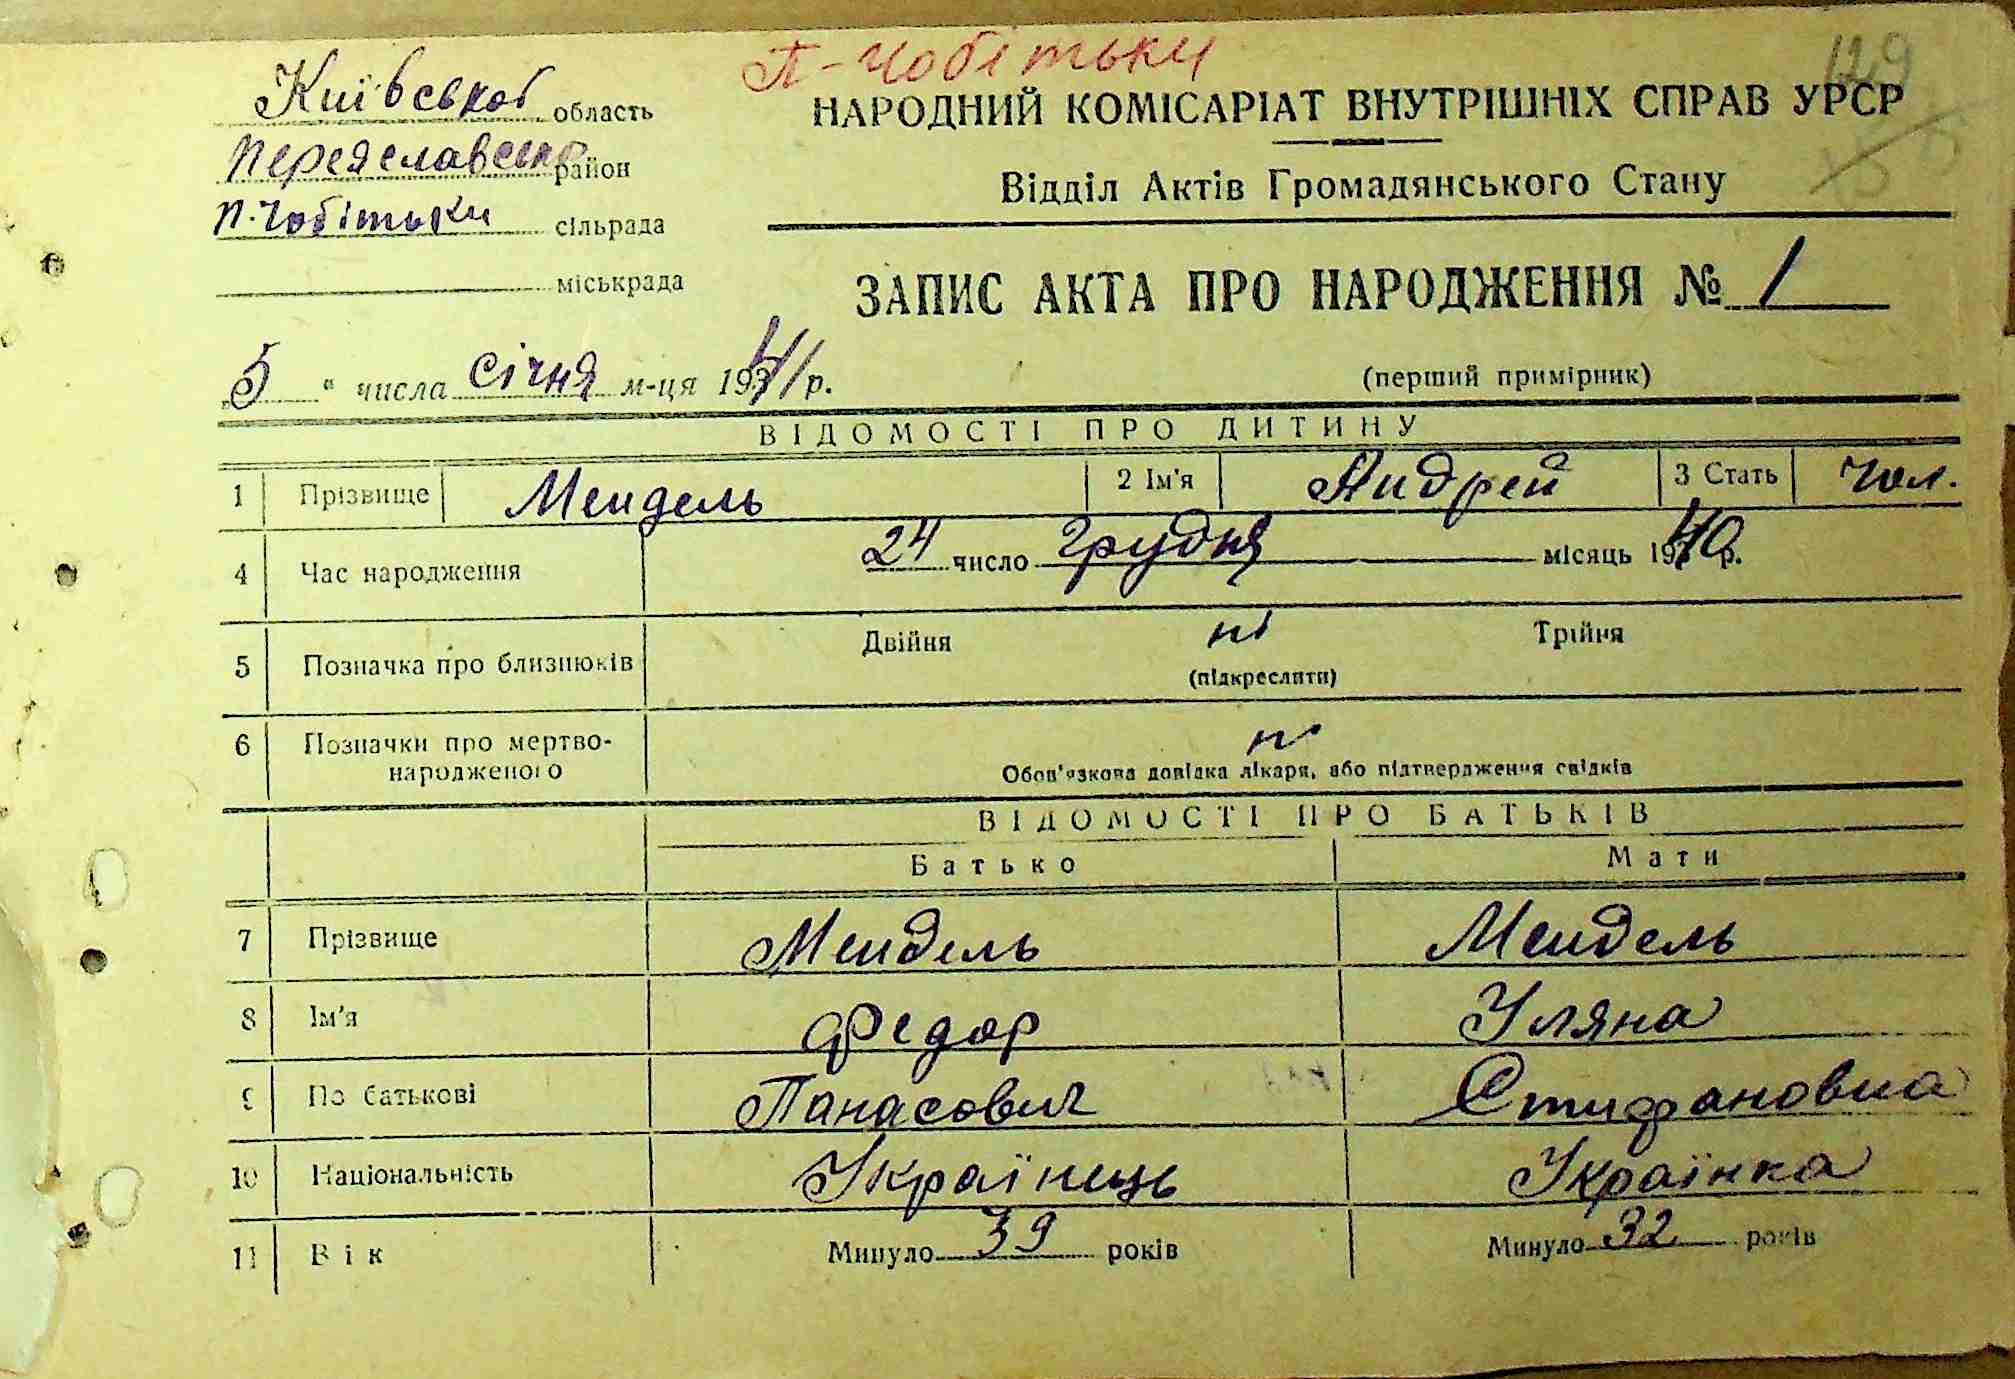 П-Чобітьки
129
Київської область
Переяславськ район
П.Чобітьки сільрада
міськрада
НАРОДНИЙ КОМІСАРІАТ ВНУТРІШНІХ СПРАВ УРСР
Відділ Актів Громадянського Стану
ЗАПИС АКТА ПРО НАРОДЖЕННЯ № 1
(перший примірник)
„5 “ числа січня м-ця 1941 р.
ВІДОМОСТІ ПРО ДИТИНУ
1 Прізвище Мендель 2 Ім'я Андрей 3 Стать чол.
4 Час народження 24 число грудня місяць 1940 р.
5 Позначка про близнюків Двійня ні Трійня
(підкреслити)
6 Позначки про мертво-
народженого ні
Обов'язкова довідка лікаря, або підтвердження свідків
ВІДОМОСТІ ПРО БАТЬКІВ
Батько Мати
7 Прізвище Мендель Мендель
8 Ім'я Федор Уляна
9 По батькові Панасович Стифановна
10 Національність Українець Українка
11 Вік Минуло 39 років Минуло 32 років